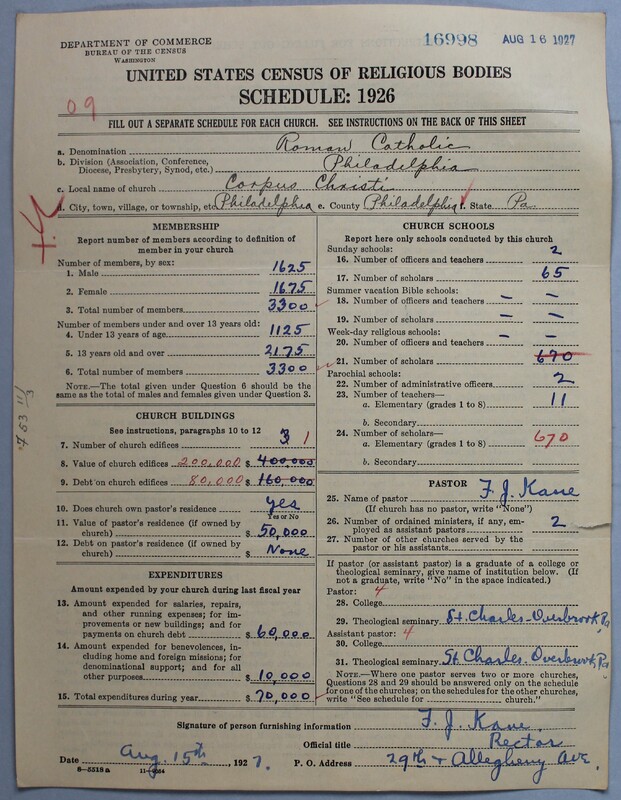 DEPARTMENT OF COMMERCE
BUREAU OF THE CENSUS
WASHINGTON
16998 AUG 16 1927
UNITED STATES CENSUS OF RELIGIOUS BODIES
SCHEDULE: 1926
09
FILL OUT A SEPARATE SCHEDULE FOR EACH CHURCH. SEE INSTRUCTIONS ON THE BACK OF THIS SHEET
a. Denomination Roman Catholic
b. Division (Association, Conference, Diocese, Presbytery, Synod, etc.) Philadelphia
c. Local name of church Corpus Christi
d. City, town, village, or township, etc Philadelphia e. County Philadelphia f. State Pa
MEMBERSHIP
Report number of members according to definition of
member in your church
Number of members, by sex:
1. Male 1625
2. Female 1675
3. Total number of members 3300
Number of members under and over 13 years old:
4. Under 13 years of age 1125
5. 13 years old and over 2175
6. Total number of members 3300
NOTE.—The total given under Question 6 should be
same as the total of males and females given under Question 3.
CHURCH BUILDINGS
See instructions, paragraphs 10 to 12
7. Number of church edifices 3 1
8. Value of church edifices 200,000 $ 400,000
9. Debt on church edifices 80,000 $ 160,000
10. Does church own pastor's residence yes
Yes or No
11. Value of pastor's residence (if owned by
church) $ 50,000
12. Debt on pastor's residence (if owned by
church) $ None
EXPENDITURES
Amount expended by church during last fiscal year
13. Amount expended for salaries, repairs,
and other running expenses; for im-
provements or new buildings; and for
payments on church debt $ 60,000
14. Amount expended for benevolences, in-
cluding home and foreign missions; for
denominational support; and for all
other purposes $ 10,000
15. Total expenditures during year $ 70,000
CHURCH SCHOOLS
Report here only schools conducted by this church
Sunday schools:
16. Number of officers and teachers 2
17. Number of scholars 65
Summer vacation Bible schools:
18. Number of officers and teachers – –
19. Number of scholars – –
Week-day religious schools:
20. Number of officers and teachers – –
21. Number of scholars 670
Parochial schools:
22. Number of administrative officers 2
23. Number of teachers—
a. Elementary (grades 1 to 8) 11
b. Secondary
24. Number of scholars—
a. Elementary (grades 1 to 8) 670
b. Secondary
PASTOR
25. Name of pastor F. J. Kane
(If church has no pastor, write "None")
26. Number of ordained ministers, if any, em-
ployed as assistant pastors 2
27. Number of other churches served by the
pastor or his assistants
If pastor (or assistant pastor) is a graduate of a college or
theological seminary, give name of institution below. (If
not a graduate, write "No" in the space indicated.)
Pastor: 4
28. College
29. Theological seminary St. Charles - Overbrook, Pa
Assistant pastor: 4
30. College
31. Theological seminary St. Charles. Overbrook, Pa
NOTE.—Where one pastor serves two or more churches,
Questions 28 and 29 should be answered only on the schedule
for one of the churches; on the schedules for the other churches,
write "See schedule for church."
Signature of person furnishing information F. J. Kane
Official title Rector
Date Aug. 15th, 1927. P. O. Address 29th + Allegheny Ave.
8—5518a